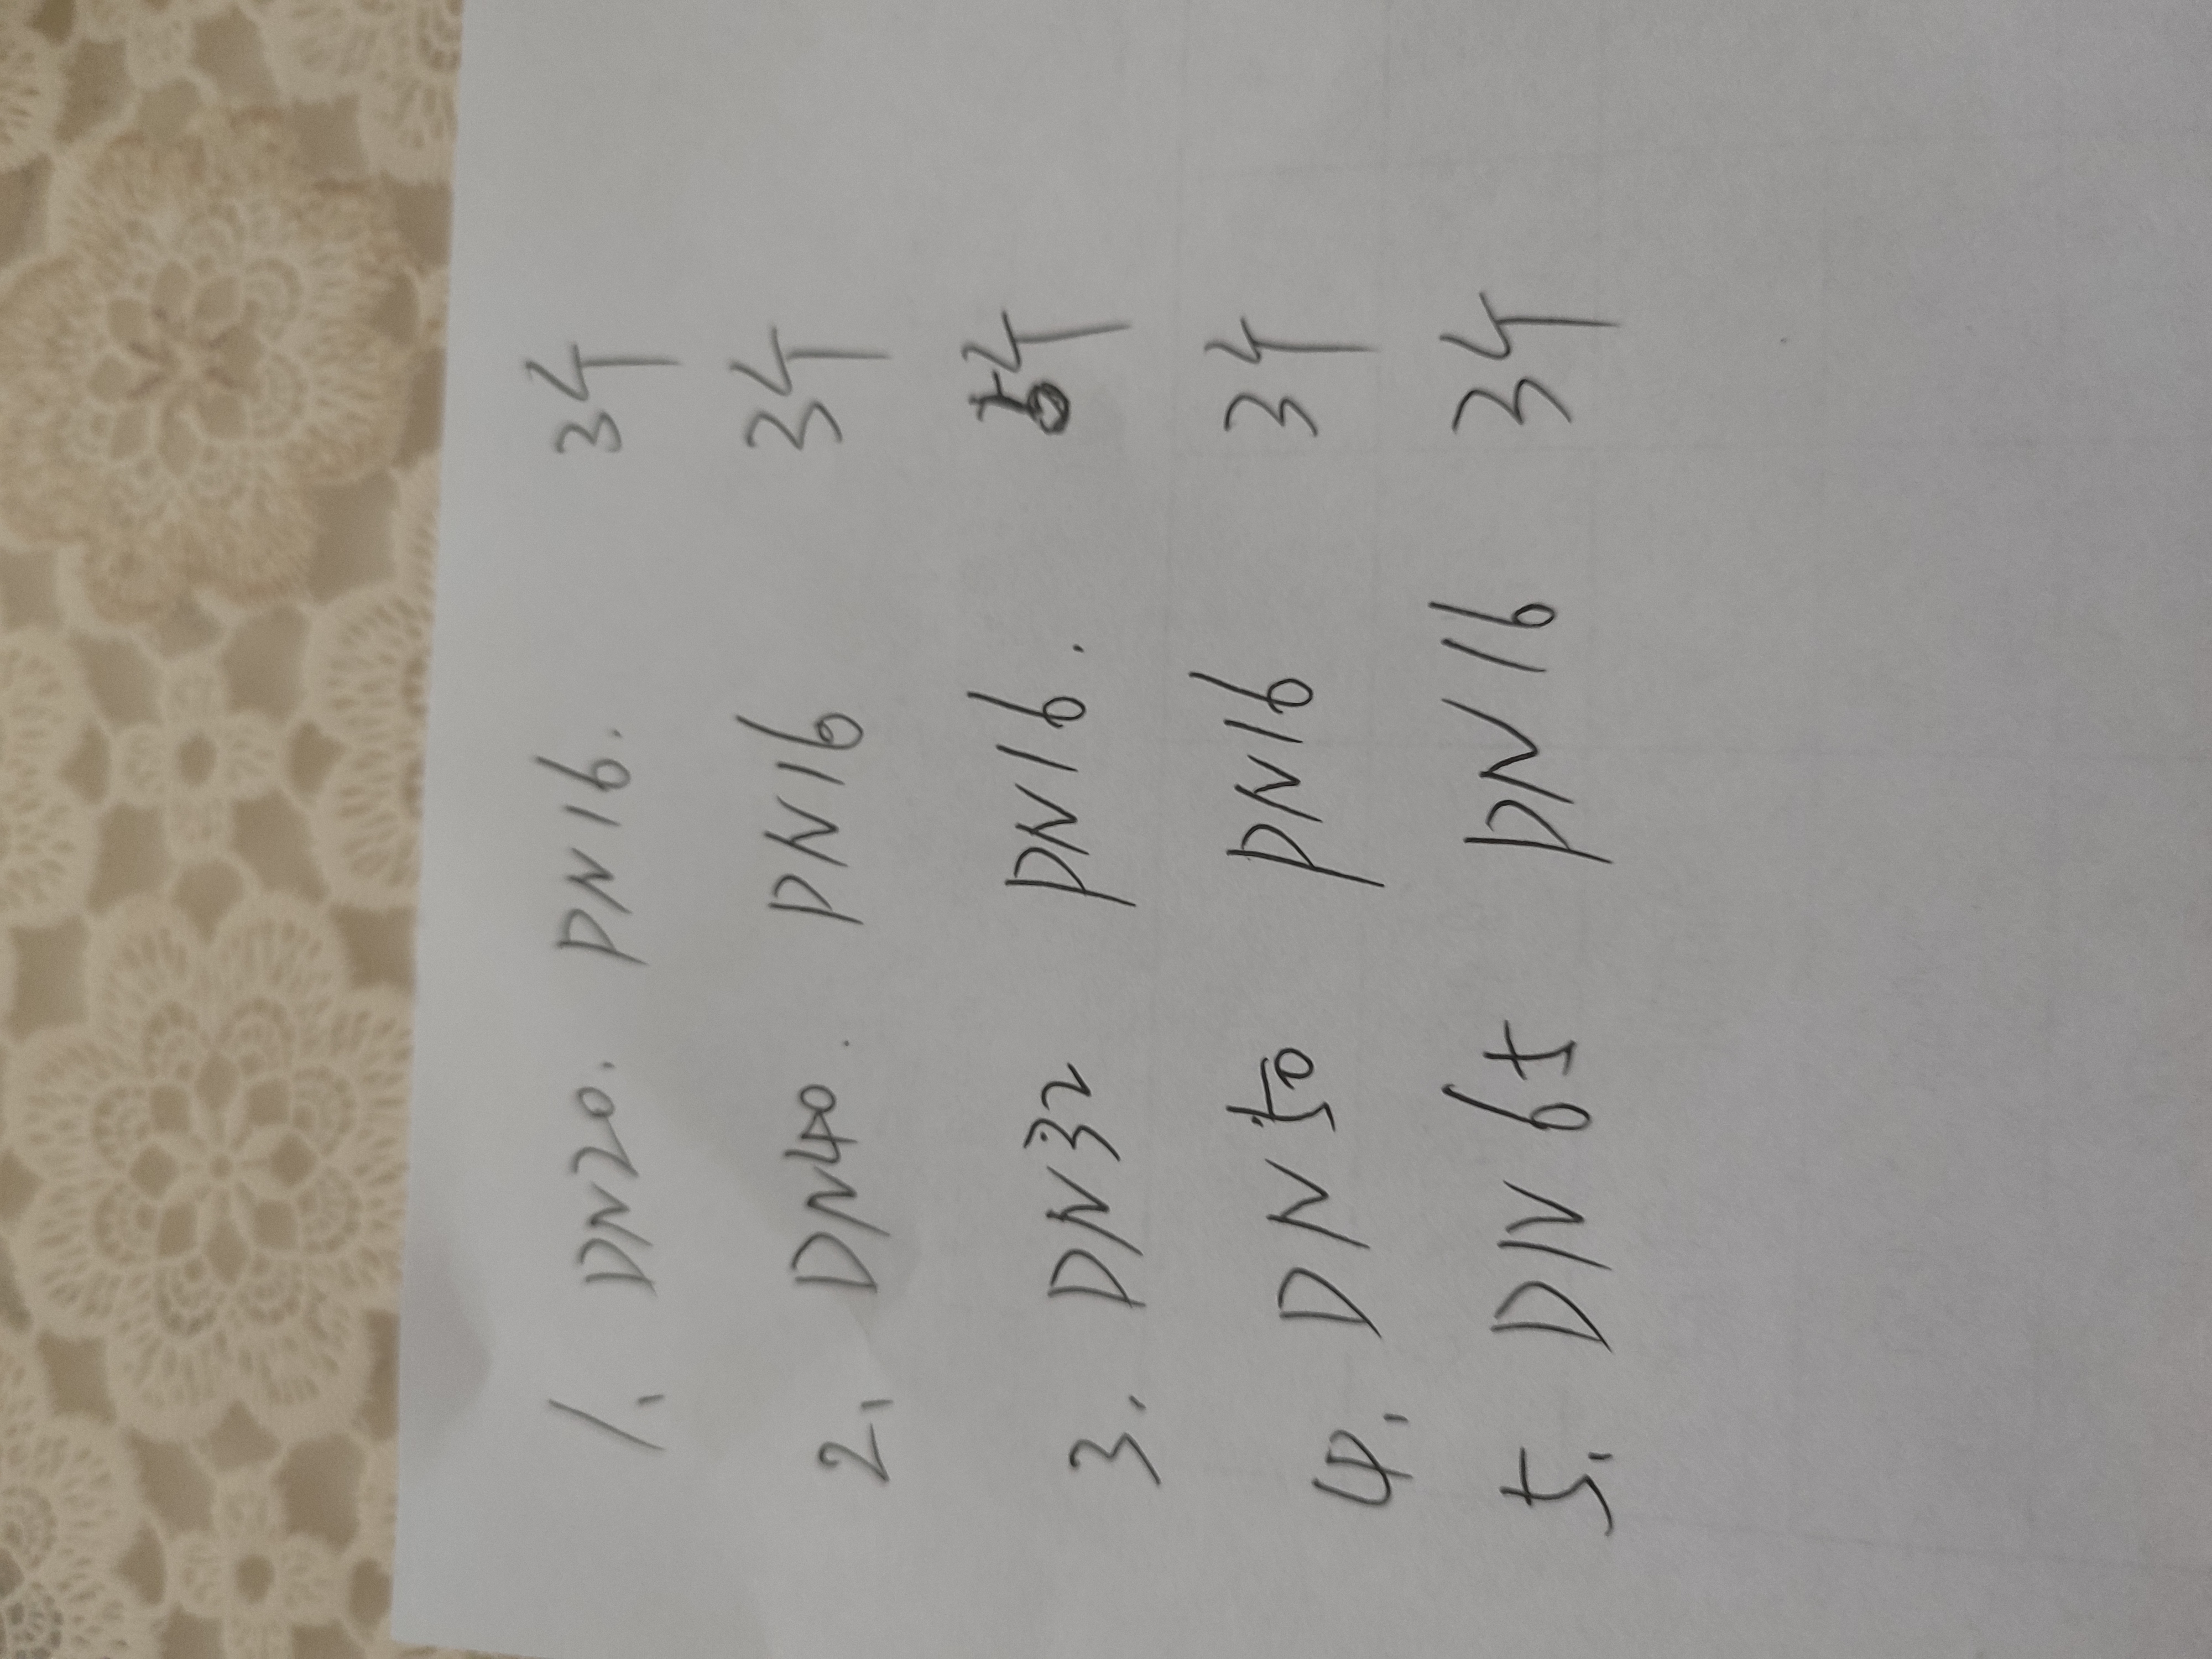 1. DN20. PN16. 3个
2. DN40. PN16 3个
3. DN32 PN16. 个
4. DN50 PN16 3个
5. DN65 PN16 3个